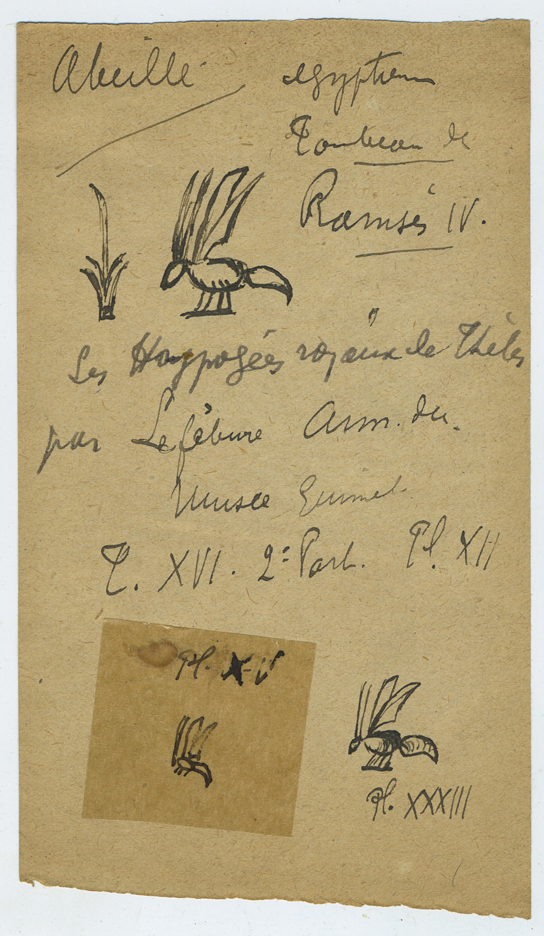 Abeille égyptienne
Tombeau de
Ramsès IV.
Les Hoypogées royaux de Thèbes
par Lefébure Ann. du
Musée Guimet
T. XVI. 2e Part. Pl. XII
Pl. XV
Pl. XXXIII